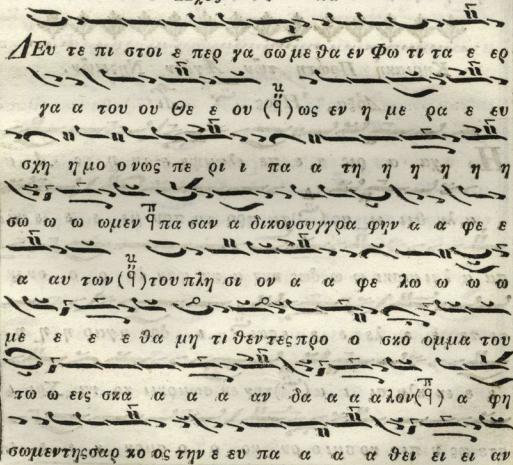 ΔΕυ τε πι στοι ε περ γα σω με θα εν Φω τι τα ε ερ
γα α του ου Θε ε ου (q̈) ως εν η με ρα ε ευ
σχη η μο ο νως πε ρι ι πα α τη η η η η η
σω ω ω ωμεν q πα σαν α δικονσυγγρα φην α α φε ε
α αυ των (q̈) του πλη σι ον α α φε λω ω ω ω
με ε ε ε θα μη τι θεντες προ ο σκο ομμα του
τω ω εις σκα α α α αν δα α α λον (q) α φη
σωμεντηςσαρ κο ος την ε ευ πα α α α θει ει ει αν